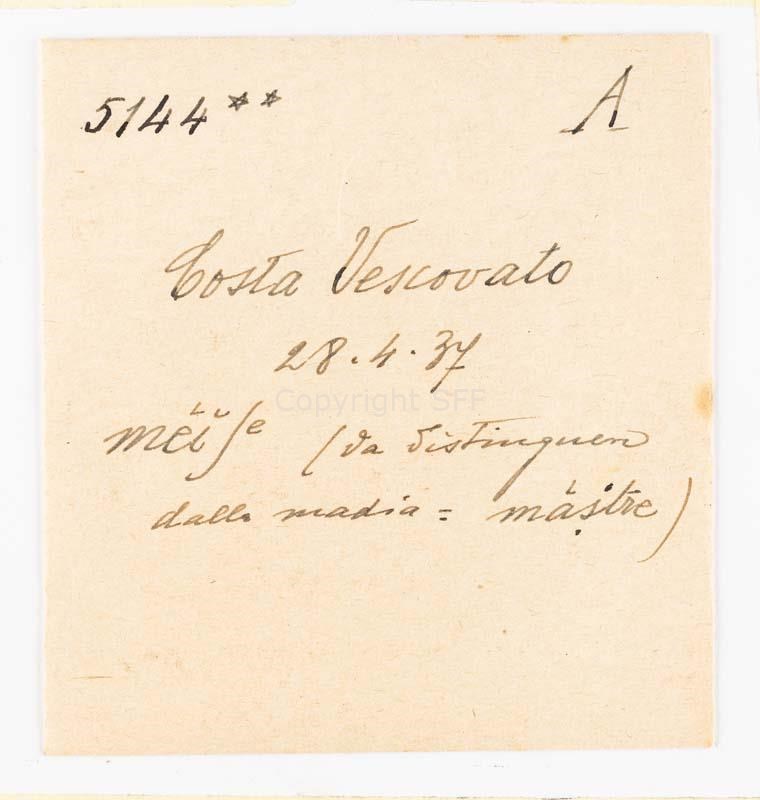 5144** A
Costa Vescovato
28.4.37
Copyright SFF
mĕĭʃe (da distinguere
dalla madia = màṣtre)